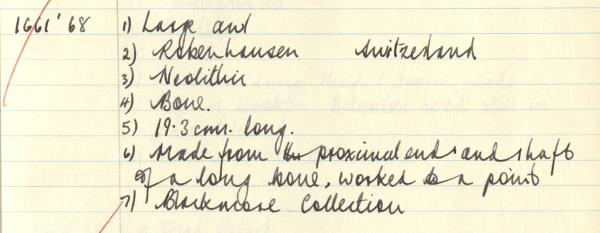 1661'68 1) Large awl
2) Robenhausen Switzerland
3) Neolithic
4) Bone.
5) 19.3 cm. long.
6) Made from the proximal end and shaft
of a long bone, worked to a point
7) Blackmore Collection